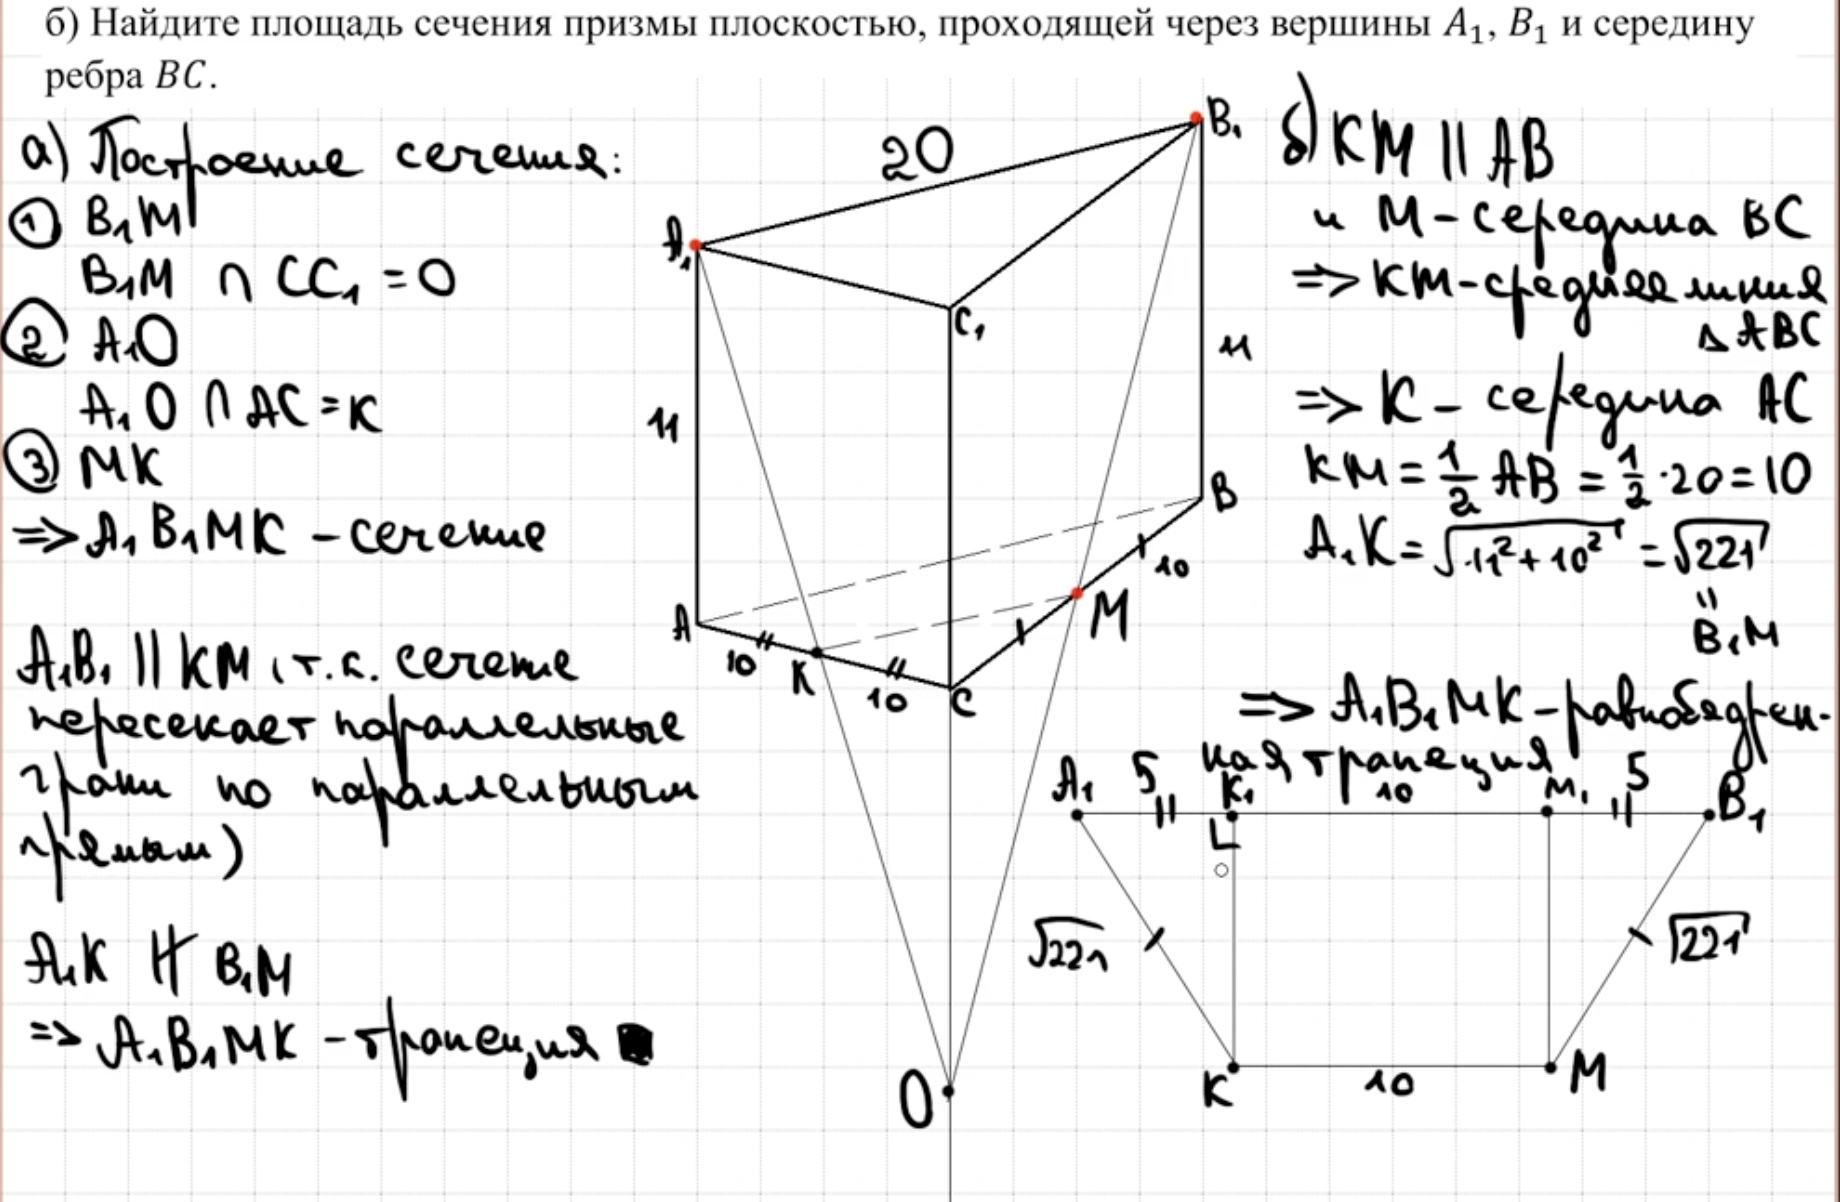 б) Найдите площадь сечения призмы плоскостью, проходящей через вершины A₁, B₁ и середину
ребра BC.
а) Построение сечения:
① B₁M
B₁M ∩ CC₁ = O
② A₁O
A₁O ∩ AC = K
③ MK
=> A₁B₁MK – сечение
A₁B₁ || KM (т.к. сечение
пересекает параллельные
грани по параллельным
прямым)
A₁K ∦ B₁M
=> A₁B₁MK – трапеция
20
A₁
B₁
C₁
11
11
A
B
10
10
K
10
C
M
O
б) KM || AB
и M – середина BC
=> KM – средняя линия
△ABC
=> K – середина AC
KM = 1/2 AB = 1/2 · 20 = 10
A₁K = √11² + 10² = √221
=
B₁M
=> A₁B₁MK – равнобедрен-
ная трапеция
A₁ 5 K₁ 10 M₁ 5 B₁
√221
√221
K 10 M